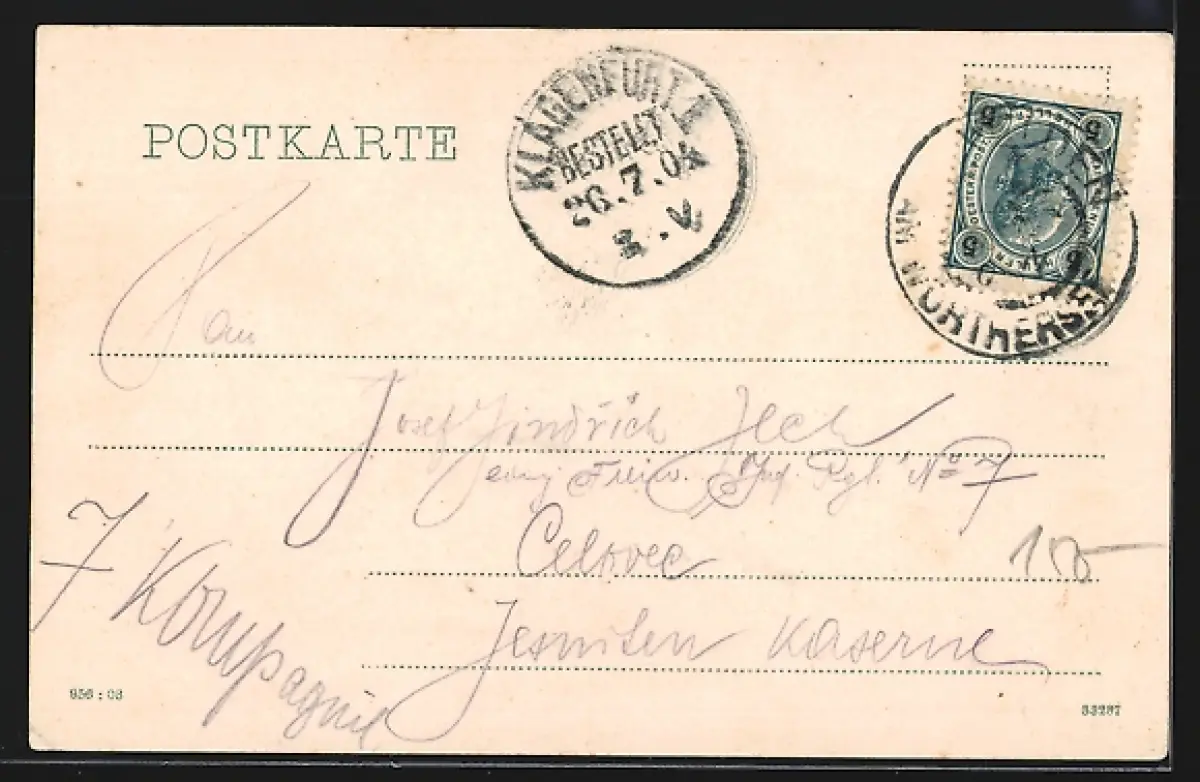 POSTKARTE
KLAGENFURT 1
BESTELLT
26.7.04
V.
5 5
5 5
AM WÖRTHERSEE
Pan
Josef Jindřich
einj. Freiw. Inf. Rgt. No 7
Celovec
Jesuiten Kaserne
7 Kompagnie
956 : 03
33287